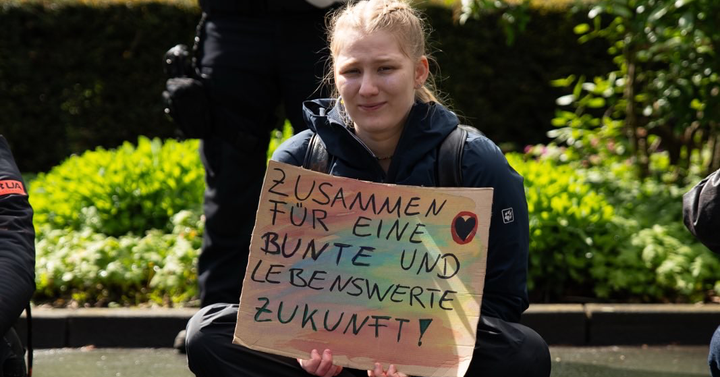 ZUSAMMEN
FÜR EINE
BUNTE UND
LEBENSWERTE
ZUKUNFT!